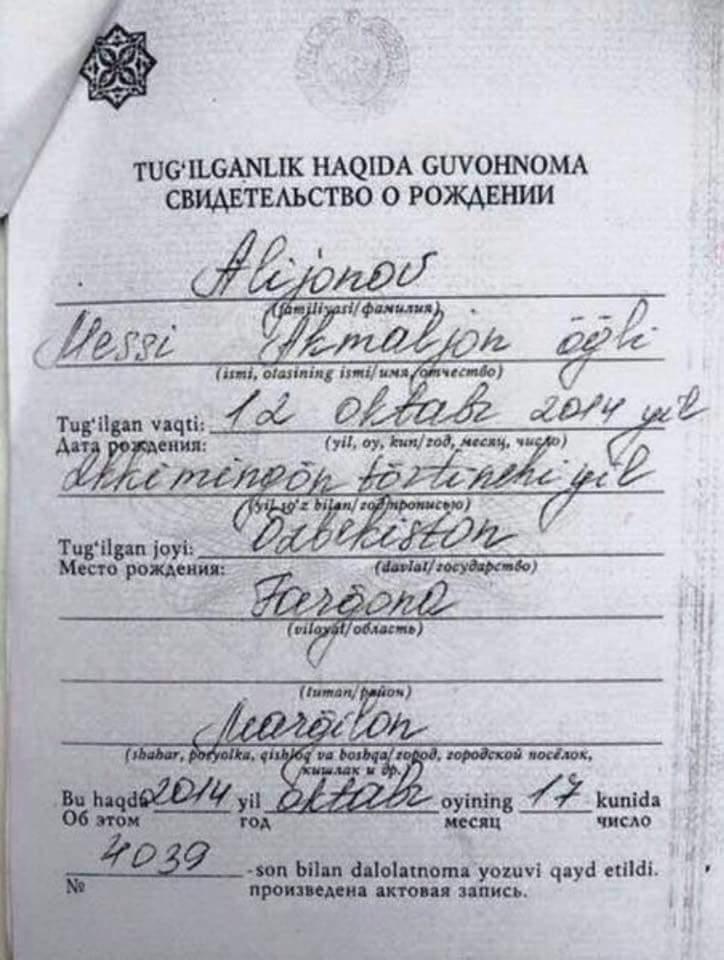 TUG‘ILGANLIK HAQIDA GUVOHNOMA
СВИДЕТЕЛЬСТВО О РОЖДЕНИИ
Alijonov
(familiyasi/фамилия)
Messi Akmaljon õğli
(ismi, otasining ismi/имя, отчество)
Tug‘ilgan vaqti: 12 oktabr 2014 yil
Дата рождения: (yil, oy, kun/год, месяц, число)
Ikki ming õn tõrtinchi yil
(yil so‘z bilan/год прописью)
Tug‘ilgan joyi: Õzbekiston
Место рождения: (davlat/государство)
Farğona
(viloyat/область)
(tuman/район)
Marğilon
(shahar, posyolka, qishloq va boshqa/город, городской посёлок,
кишлак и др.)
Bu haqda 2014 yil oktabr oyining 17 kunida
Об этом год месяц число
4039 -son bilan dalolatnoma yozuvi qayd etildi.
№ произведена актовая запись.